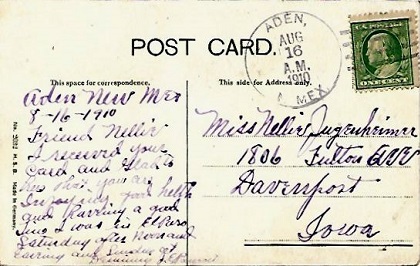 POST CARD.
ADEN,
AUG
16
A.M.
1910
MEX.
U.S. POSTAGE
ONE CENT
This space for correspondence.
This side for Address only.
Aden New Mex
8-16-1910
Friend Nellie
I received your
Card, and Glad to
see that you are
Enjoying good helth
and Having a good
time I was in El Paso
Saturday after Noon and
Evening and Sunday at
Deming
Miss Nellie Jugenheimer
1806 Fulton Ave
Davenport
Iowa
Made in Germany.